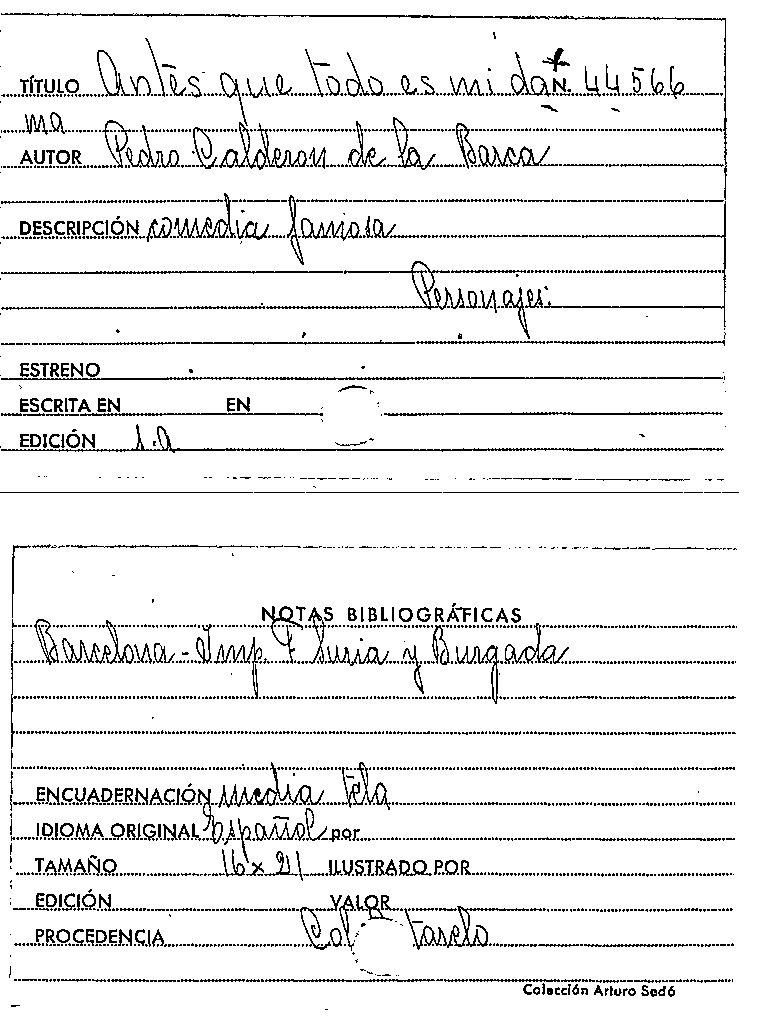 TÍTULO Antes que todo es mi da N. 44566
ma
AUTOR Pedro Calderon de la Barca
DESCRIPCIÓN comedia famosa
Personajes:
ESTRENO
ESCRITA EN EN
EDICIÓN 1.a
NOTAS BIBLIOGRÁFICAS
Barcelona - Imp. F Suria y Burgada
ENCUADERNACIÓN media tela
IDIOMA ORIGINAL español por
TAMAÑO 16 x 21 ILUSTRADO POR
EDICIÓN VALOR
PROCEDENCIA Col
Colección Arturo Sedó